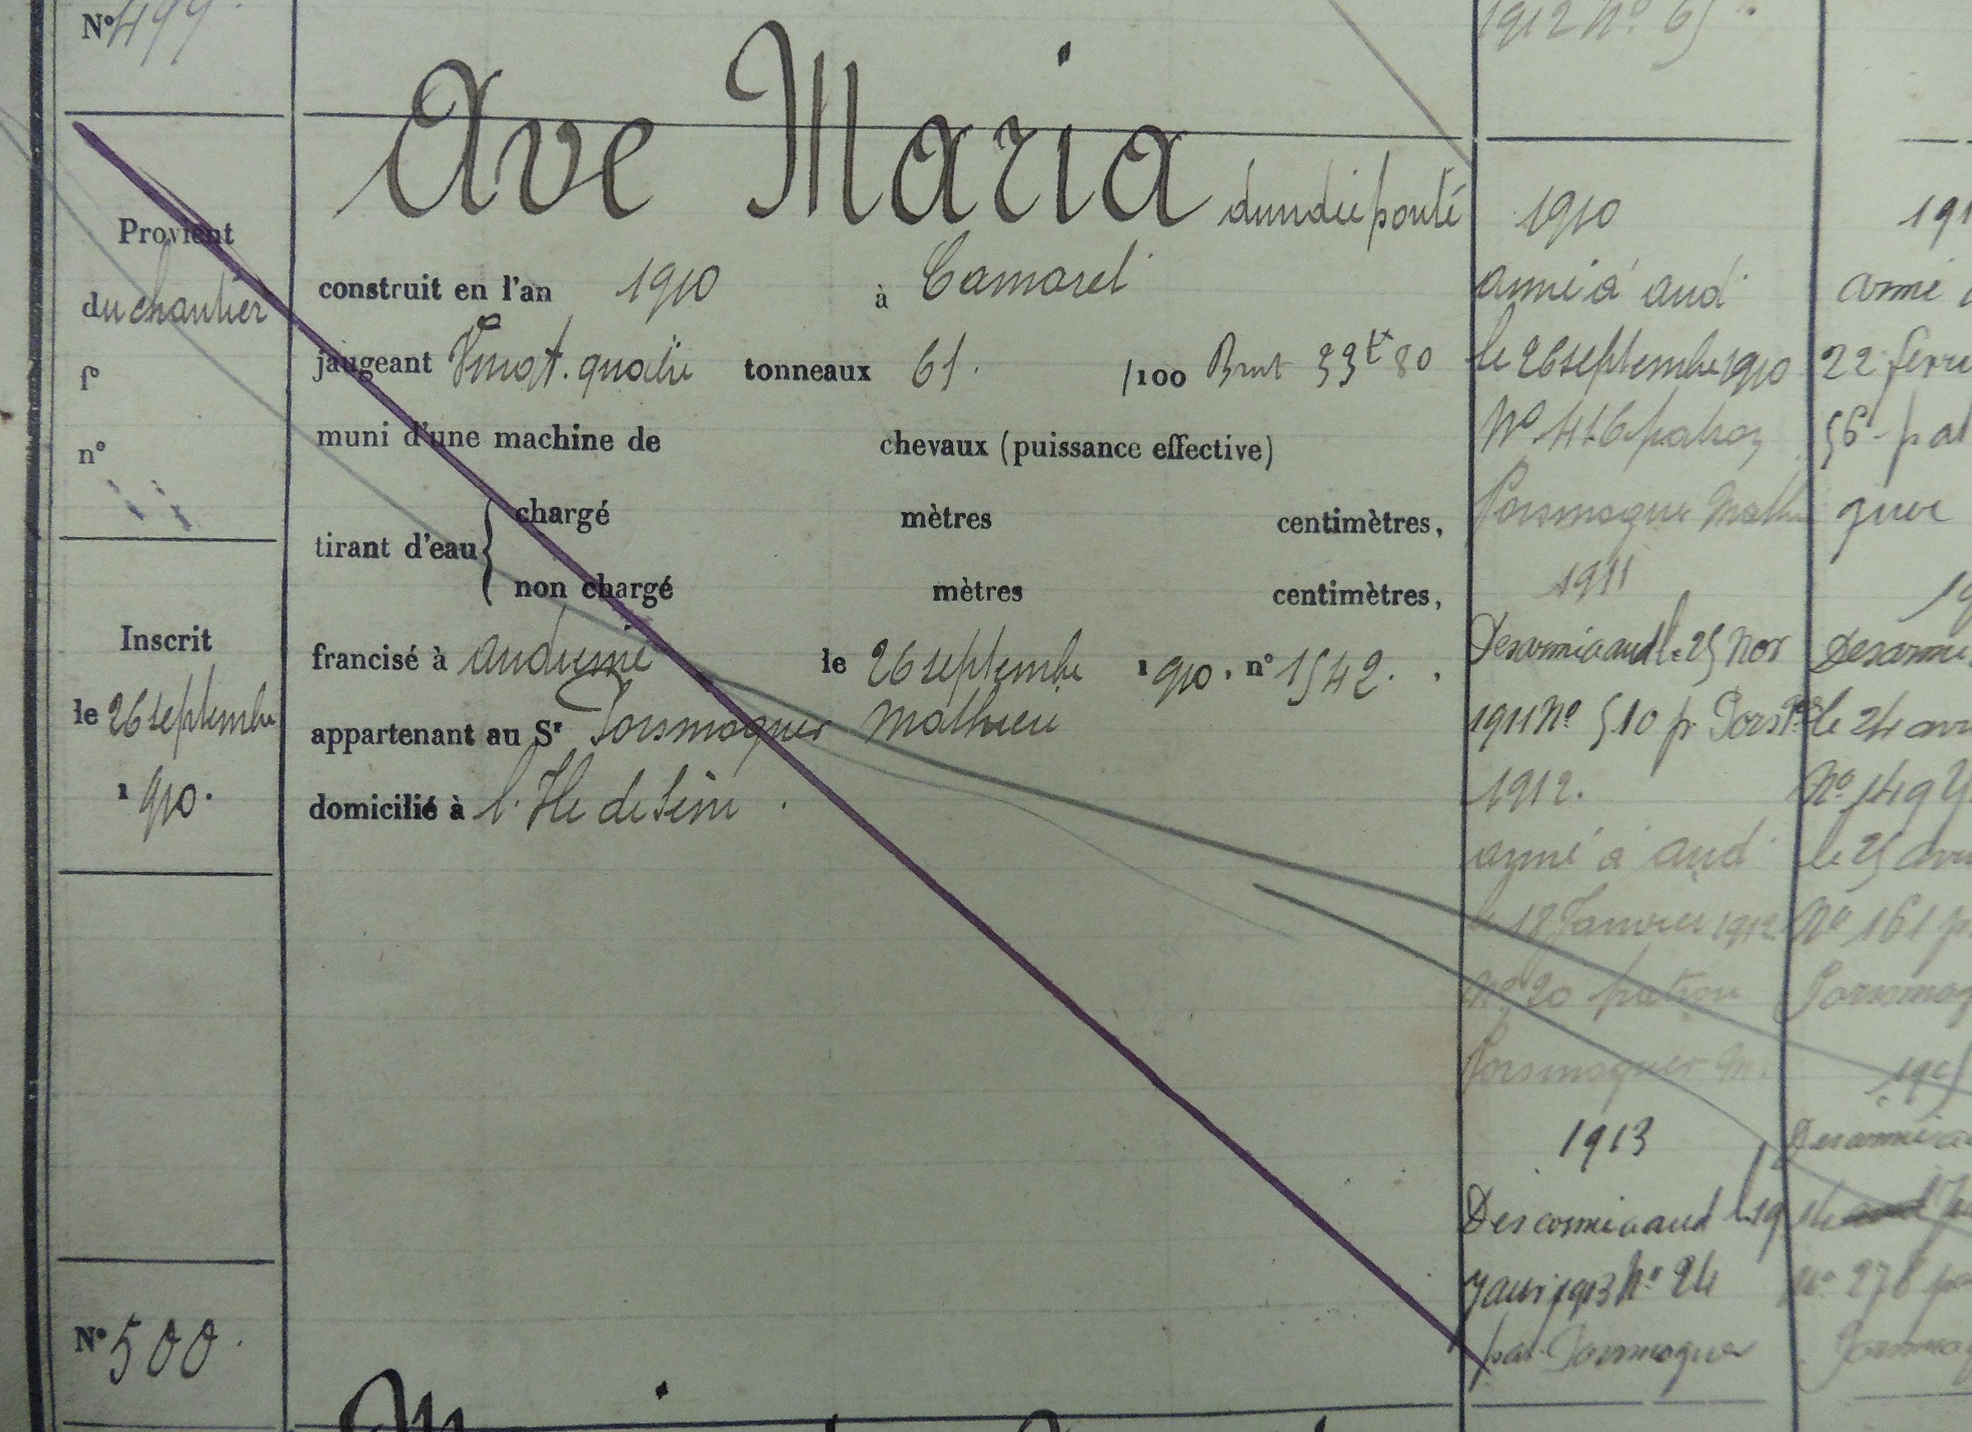 N° 499.
1912 N° 65.
Ave Maria dundée ponté
Provient
du chantier
f°
n°
Inscrit
le 26 septembre
1910.
N° 500.
construit en l'an 1910 à Camaret
jaugeant Vingt-quatre tonneaux 61. /100 Brut 33tx 80
muni d'une machine de chevaux (puissance effective)
tirant d'eau { chargé mètres centimètres,
non chargé mètres centimètres,
francisé à audierne le 26 septembre 1910. n° 1542.
appartenant au Sr Porsmoguer Mathieu
domicilié à l'Ile de Sein.
1910
armé à aud
le 26 septembre 1910
N° 416 patron
Porsmoguer Math
1911
Desarmé a aud le 25 Nov
1911 N° 510 p Pors
1912.
armé à aud
le 18 Janvier 1912
N° 20 patron
Porsmoguer M.
1913
Desarmé a aud le 19
Janv 1913 N° 24
par Porsmoguer
191
armé
22 fevri
56 pat
guer
19
Desarmé
le 24 avr
N° 149
le 25 avr
N° 161 p
Porsmog
Desarmé a
N° 276 pa
Porsmog